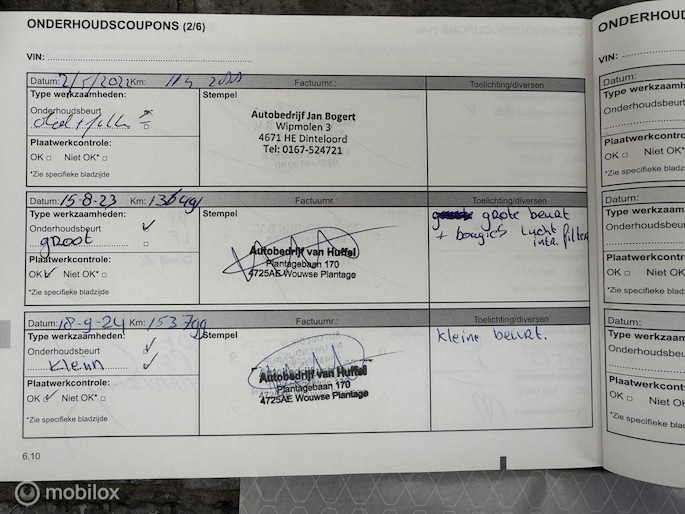 ONDERHOUDSCOUPONS (2/6)
VIN:
Datum: 2/5/2022 Km: Factuurnr.: Toelichting/diversen
Type werkzaamheden: Stempel
Onderhoudsbeurt
Autobedrijf Jan Bogert
Wipmolen 3
4671 HE Dinteloord
Tel: 0167-524721
Plaatwerkcontrole:
OK Niet OK*
*Zie specifieke bladzijde
Datum: 15-8-23 Km: Factuurnr.: Toelichting/diversen
Type werkzaamheden: Stempel
Onderhoudsbeurt
groot
Autobedrijf van Huffel
Plantagebaan 170
4725AE Wouwse Plantage
grote beurt
+ bougies lucht
intr. filter
Plaatwerkcontrole:
OK Niet OK*
*Zie specifieke bladzijde
Datum: 18-9-24 Km: 153799 Factuurnr.: Toelichting/diversen
Type werkzaamheden: Stempel
Onderhoudsbeurt
klein
Autobedrijf van Huffel
Plantagebaan 170
4725AE Wouwse Plantage
kleine beurt.
Plaatwerkcontrole:
OK Niet OK*
*Zie specifieke bladzijde
6.10
ONDERHOUD
VIN:
Datum:
Type werkzaam
Onderhoudsbeurt
Plaatwerkcontro
OK Niet OK*
*Zie specifieke bladz
Datum:
Type werkzaam
Onderhoudsbeurt
Plaatwerkcontro
OK Niet OK*
*Zie specifieke bladz
Datum:
Type werkzaam
Onderhoudsbeurt
Plaatwerkcontr
OK Niet OK*
*Zie specifieke blad
mobilox